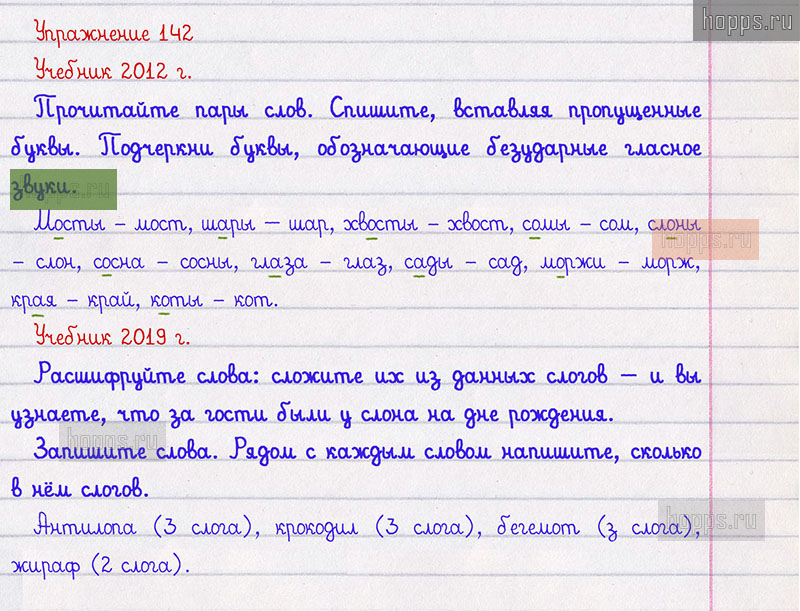 hopps.ru
Упражнение 142
Учебник 2012 г.
Прочитайте пары слов. Спишите, вставляя пропущенные
буквы. Подчеркни буквы, обозначающие безударные гласное
звуки.
hopps.ru
Мосты – мост, шары – шар, хвосты – хвост, сомы – сом, слоны
hopps.ru
– слон, сосна – сосны, глаза – глаз, сады – сад, моржи – морж,
края – край, коты – кот.
Учебник 2019 г.
Расшифруйте слова: сложите их из данных слогов – и вы
узнаете, что за гости были у слона на дне рождения.
hopps.ru
Запишите слова. Рядом с каждым словом напишите, сколько
в нём слогов.
hopps.ru
Антилопа (3 слога), крокодил (3 слога), бегемот (з слога),
жираф (2 слога).